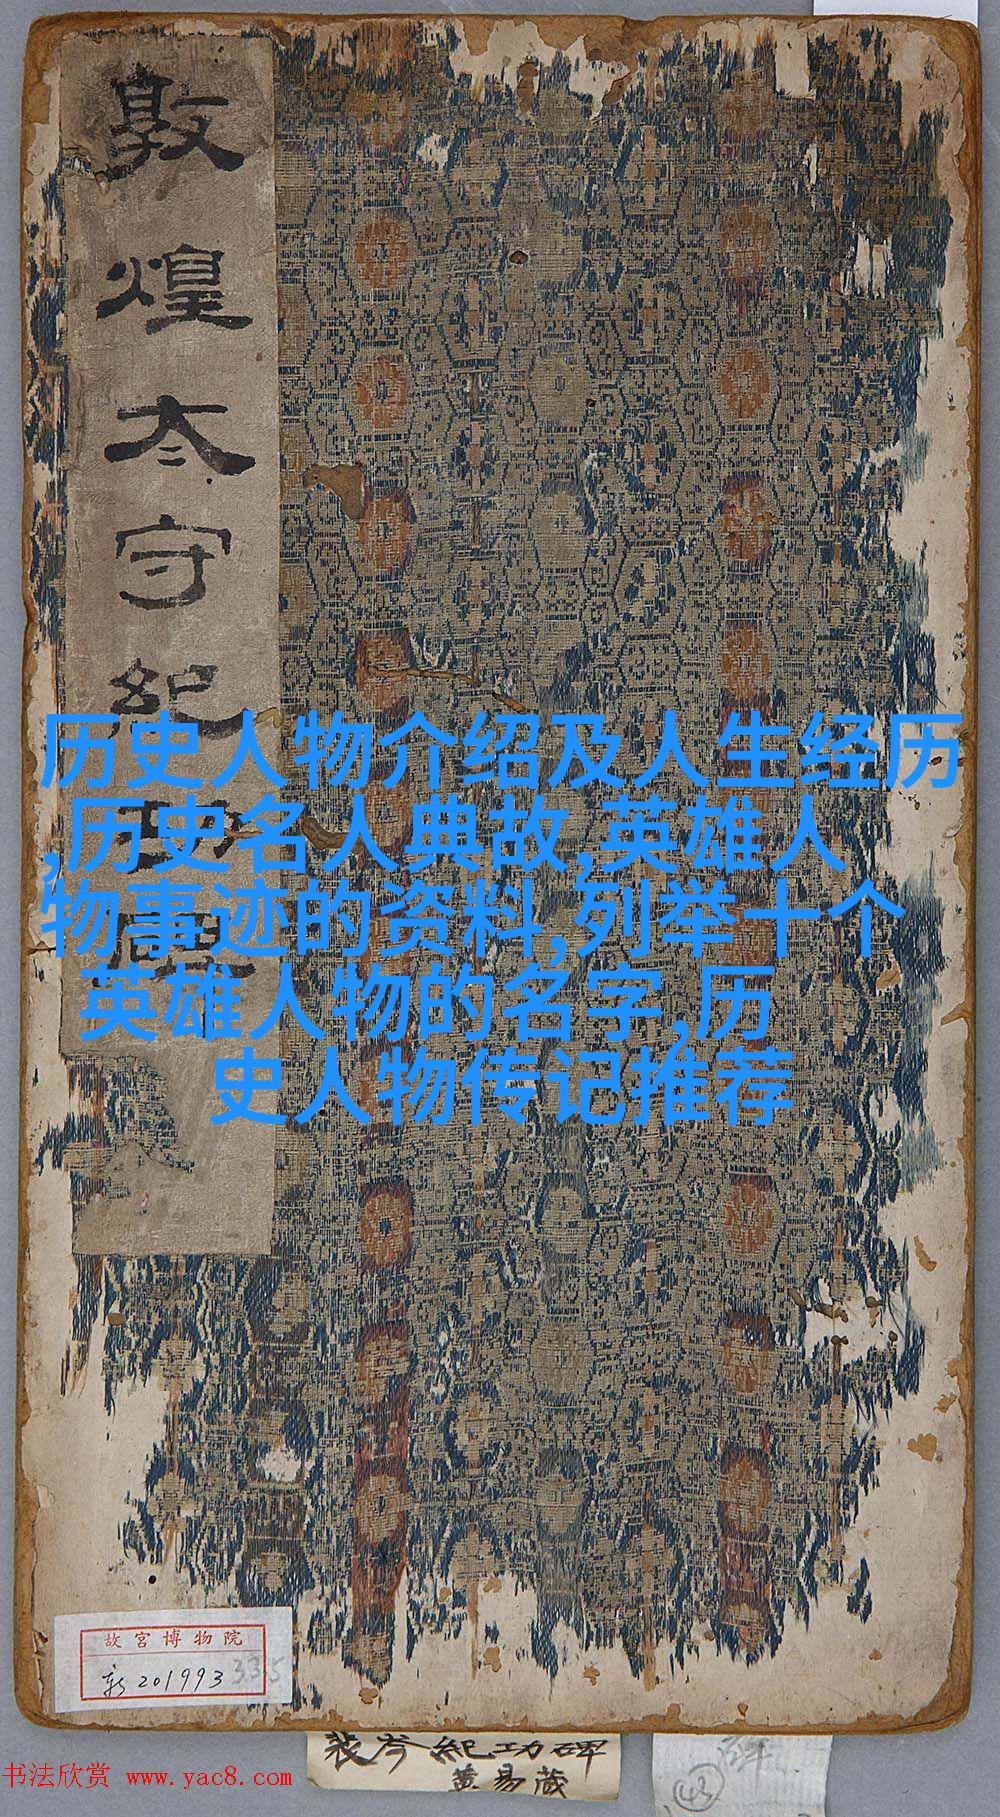 敦煌太守紀功碑
历史人物介绍及人生经历
,历史名人典故,英雄人
物事迹的资料,列举十个
英雄人物的名字,历
史人物传记推荐
故宫博物院
新201993
335
裴岑紀功碑
黄易藏
43
书法欣赏 www.yac8.com